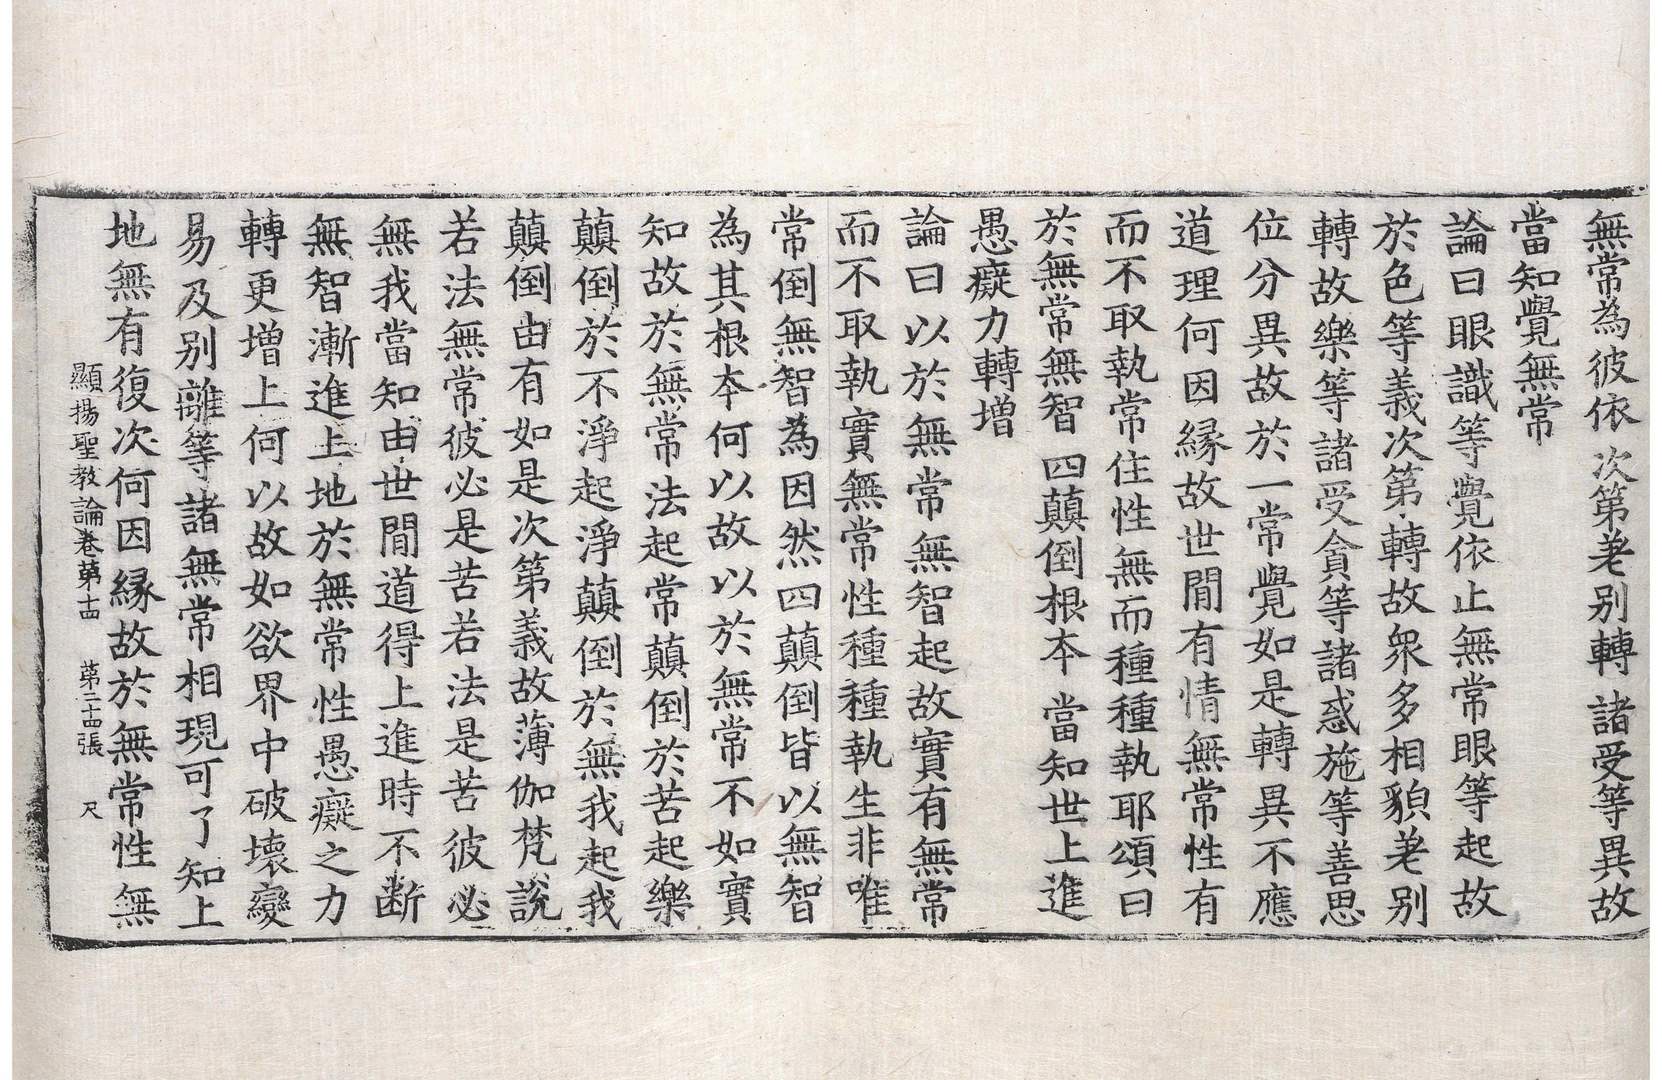 無常為彼依 次第差別轉 諸受等異故
當知覺無常
論曰眼識等覺依止無常眼等起故
於色等義次第轉故衆多相貌差別
轉故樂等諸受貪等諸惑施等善思
位分異故於一常覺如是轉異不應
道理何因縁故世間有情無常性有
而不取執常住性無而種種執耶頌曰
於無常無智 四顛倒根本 當知世上進
愚癡力轉增
論曰以於無常無智起故實有無常
而不取執實無常性種種執生非唯
常倒無智為因然四顛倒皆以無智
為其根本何以故以於無常不如實
知故於無常法起常顛倒於苦起樂
顛倒於不淨起淨顛倒於無我起我
顛倒由有如是次第義故薄伽梵說
若法無常彼必是苦若法是苦彼必
無我當知由世間道得上進時不断
無智漸進上地於無常性愚癡之力
轉更增上何以故如欲界中破壞變
易及別離等諸無常相現可了知上
地無有復次何因縁故於無常性無
顯揚聖教論卷苐十四 苐二十四張 尺